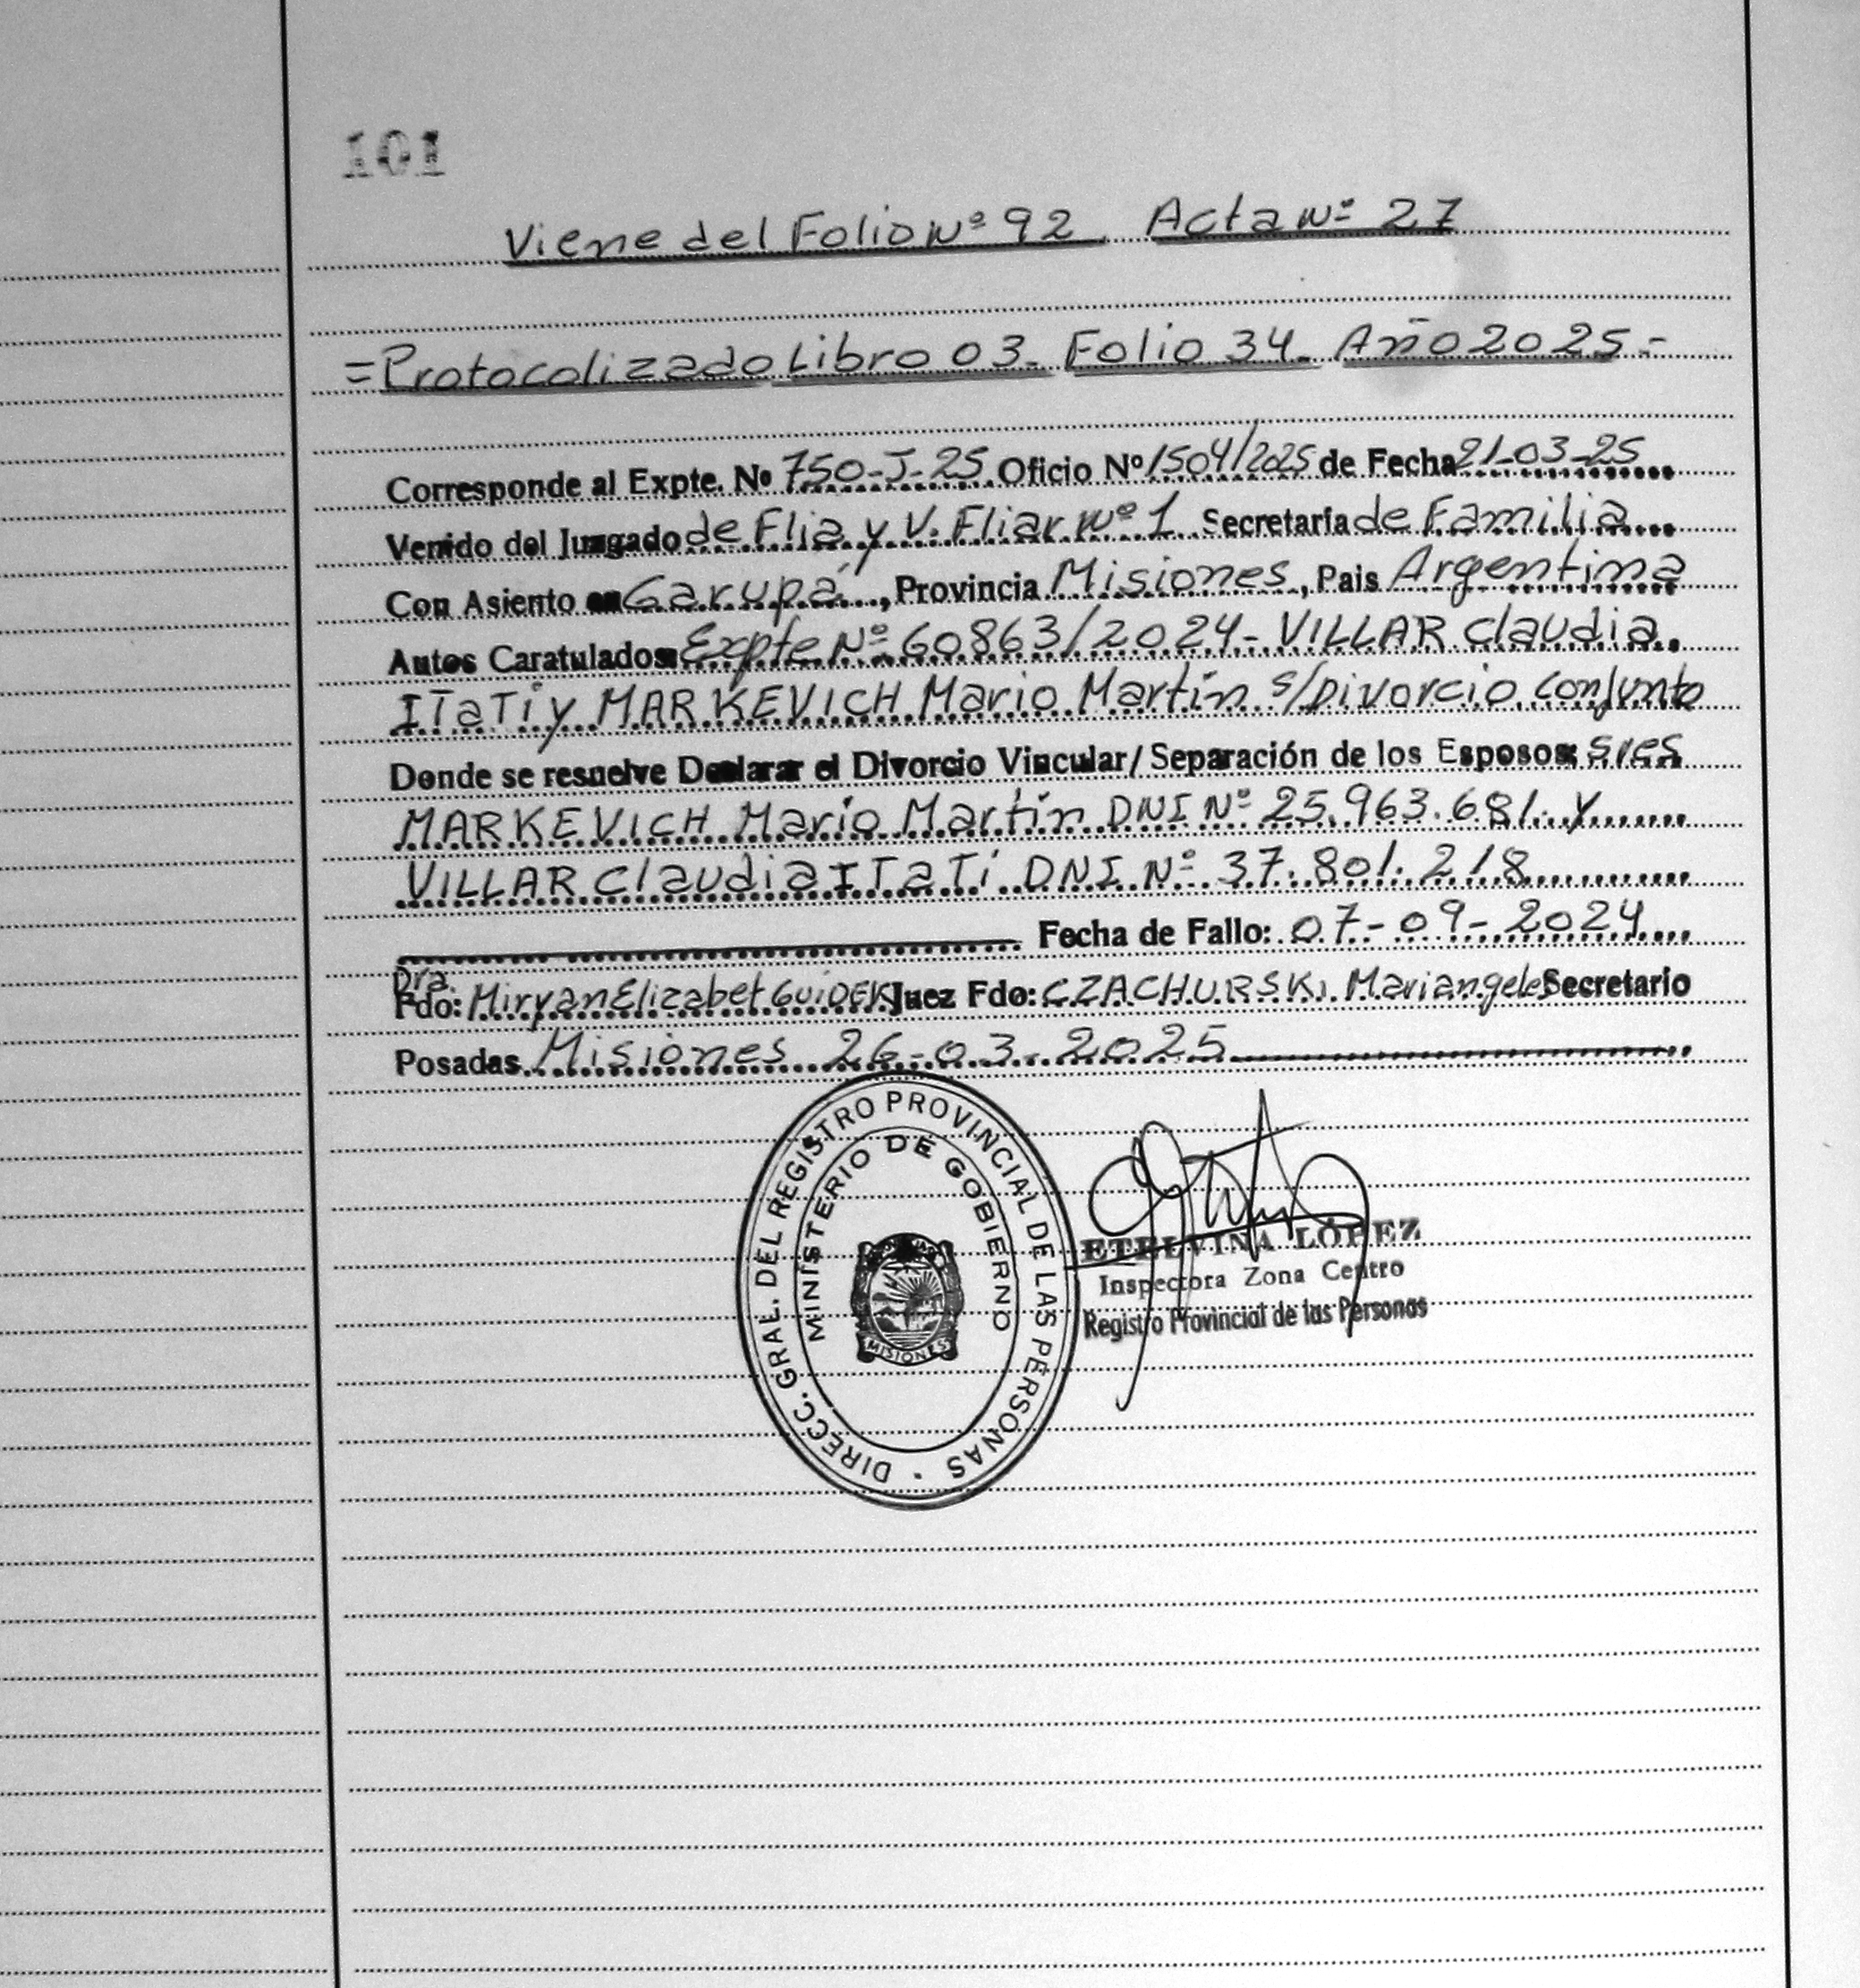 101
Viene del Folio Nº 92 Acta Nº 27
=Protocolizado Libro 03. Folio 34. Año 2025.-
Corresponde al Expte. Nº 750-J-25 Oficio Nº 1504/2025 de Fecha 21-03-25
Venido del Juzgado de Flia y V. Fliar Nº 1 Secretaría de Familia
Con Asiento en Garupá, Provincia Misiones, Pais Argentina
Autos Caratulados: Expte Nº 60863/2024- VILLAR Claudia
ITaTi y MARKEVICH Mario Martín s/Divorcio Conjunto
Donde se resuelve Declarar el Divorcio Vincular/ Separación de los Esposos: sres
MARKEVICH Mario Martín DNI Nº 25.963.681. y
VILLAR Claudia ITaTi DNI Nº 37.801.218
Fecha de Fallo: 07-09-2024
Dra.
Fdo: Miryan Elizabet Juez Fdo: CZACHURSKI Mariangeles Secretario
Posadas. Misiones 26-03-2025
DIRECC. GRAL. DEL REGISTRO PROVINCIAL DE LAS PERSONAS
MINISTERIO DE GOBIERNO
MISIONES
ETELVINA LÓPEZ
Inspectora Zona Centro
Registro Provincial de las Personas